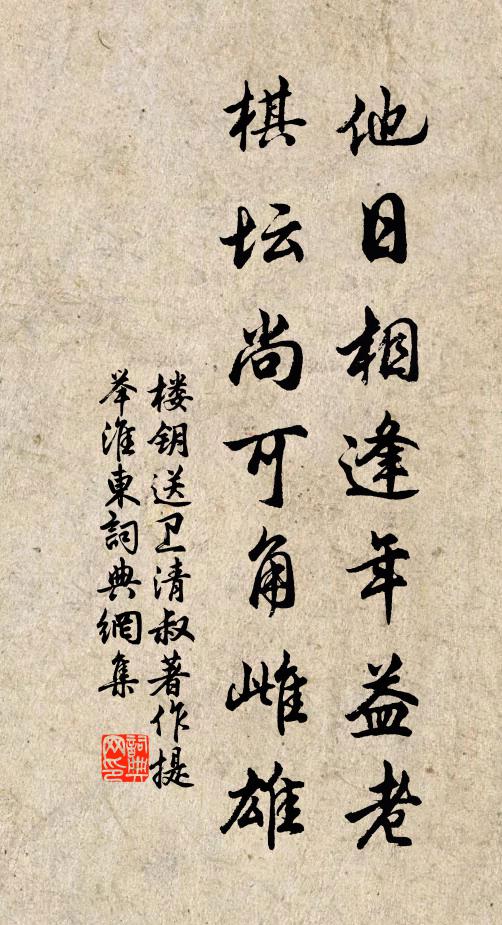 他日相逢年益老
棋坛尚可角雌雄
楼钥送卫清叔著作提
举淮東詞典網集
詞典
网印